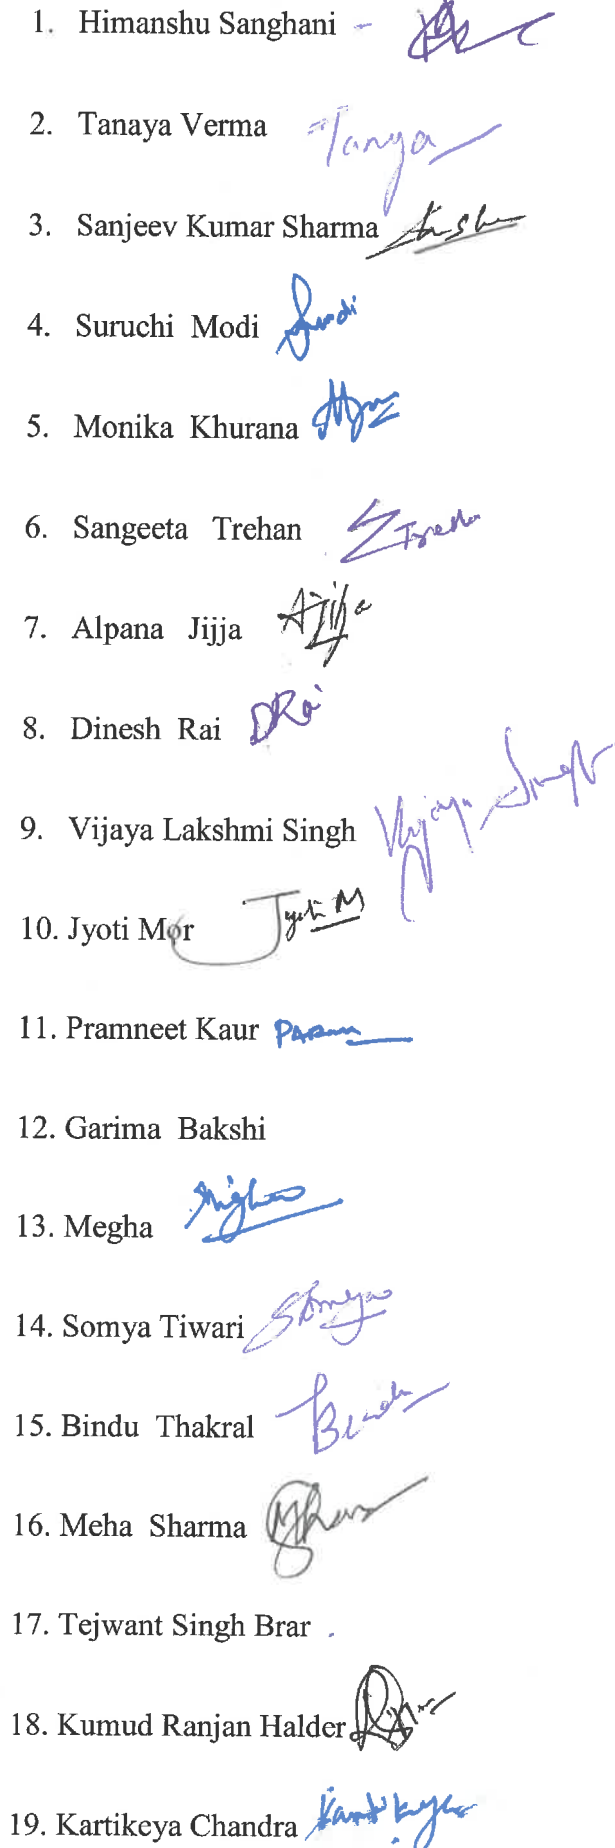 1. Himanshu Sanghani -
2. Tanaya Verma Tanya
3. Sanjeev Kumar Sharma
4. Suruchi Modi
5. Monika Khurana
6. Sangeeta Trehan
7. Alpana Jijja Ajijja
8. Dinesh Rai DRai
9. Vijaya Lakshmi Singh Vijaya Singh
10. Jyoti Mor Jyoti M
11. Pramneet Kaur
12. Garima Bakshi
13. Megha
14. Somya Tiwari Somya
15. Bindu Thakral Bindu
16. Meha Sharma
17. Tejwant Singh Brar .
18. Kumud Ranjan Halder
19. Kartikeya Chandra Kartikeya